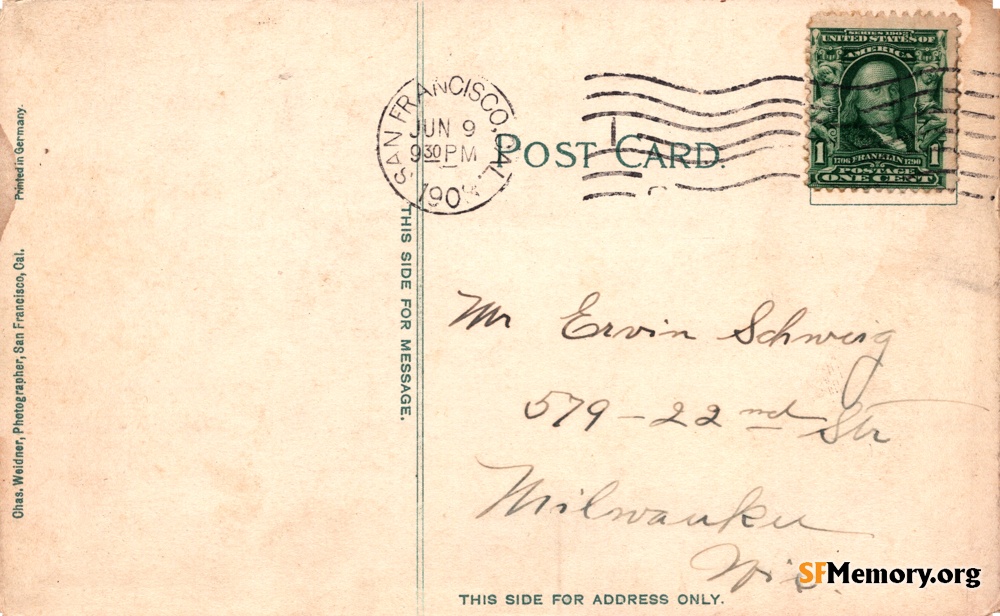 Printed in Germany.
Chas. Weidner, Photographer, San Francisco, Cal.
THIS SIDE FOR MESSAGE.
SAN FRANCISCO, CAL.
JUN 9
930 PM
190
POST CARD.
SERIES 1902
UNITED STATES OF
AMERICA
1 1706 FRANKLIN 1790 1
POSTAGE
ONE CENT
Mr Ervin Schweig
579 - 22nd Str
Milwaukee
Wis.
THIS SIDE FOR ADDRESS ONLY.
SFMemory.org